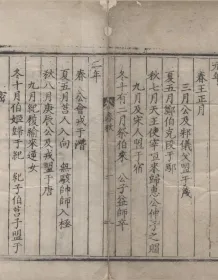 元年
春王正月
三月公及邾儀父盟于蔑
夏五月鄭伯克段于鄢
秋七月天王使宰咺來歸惠公仲子之賵
九月及宋人盟于宿
冬十有二月祭伯來 公子益師卒
春秋
二年
春 公會戎于潛
夏五月莒人入向 無駭帥師入極
秋八月庚辰公及戎盟于唐
九月紀裂繻來逆女
冬十月伯姬歸于紀 紀子伯莒子盟于